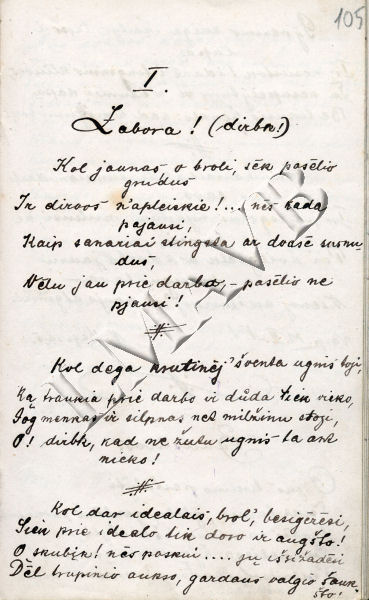 105
I.
Labora! (dirbk!)
Kol jaunas, o broli, sėk pasėlio
grudus
Ir dirvos n'apleiskie!... nės kada
pajausi,
Kaip sanariai stingsta ar dvasė susnu-
dus,
Vėlu jau prie darbo, - pasėlio ne
pjausi!
Kol dega krutinėj' šventa ugnis toji,
Ką traukia prie darbo ir důda tiek vieko,
Jog mennas ir silpnas net milžinu stoji,
O! dirbk, kad ne žutu ugnis ta ant
nieko!
Kol dar idealais, brol', besigėrėsi,
Siek prie idealo tik doro ir augšto!
O skubįk! nės poskui .... jų išsižadėsi
Dėl trupinio aukso, gardaus valgio šaukš-
što!
LMAVB